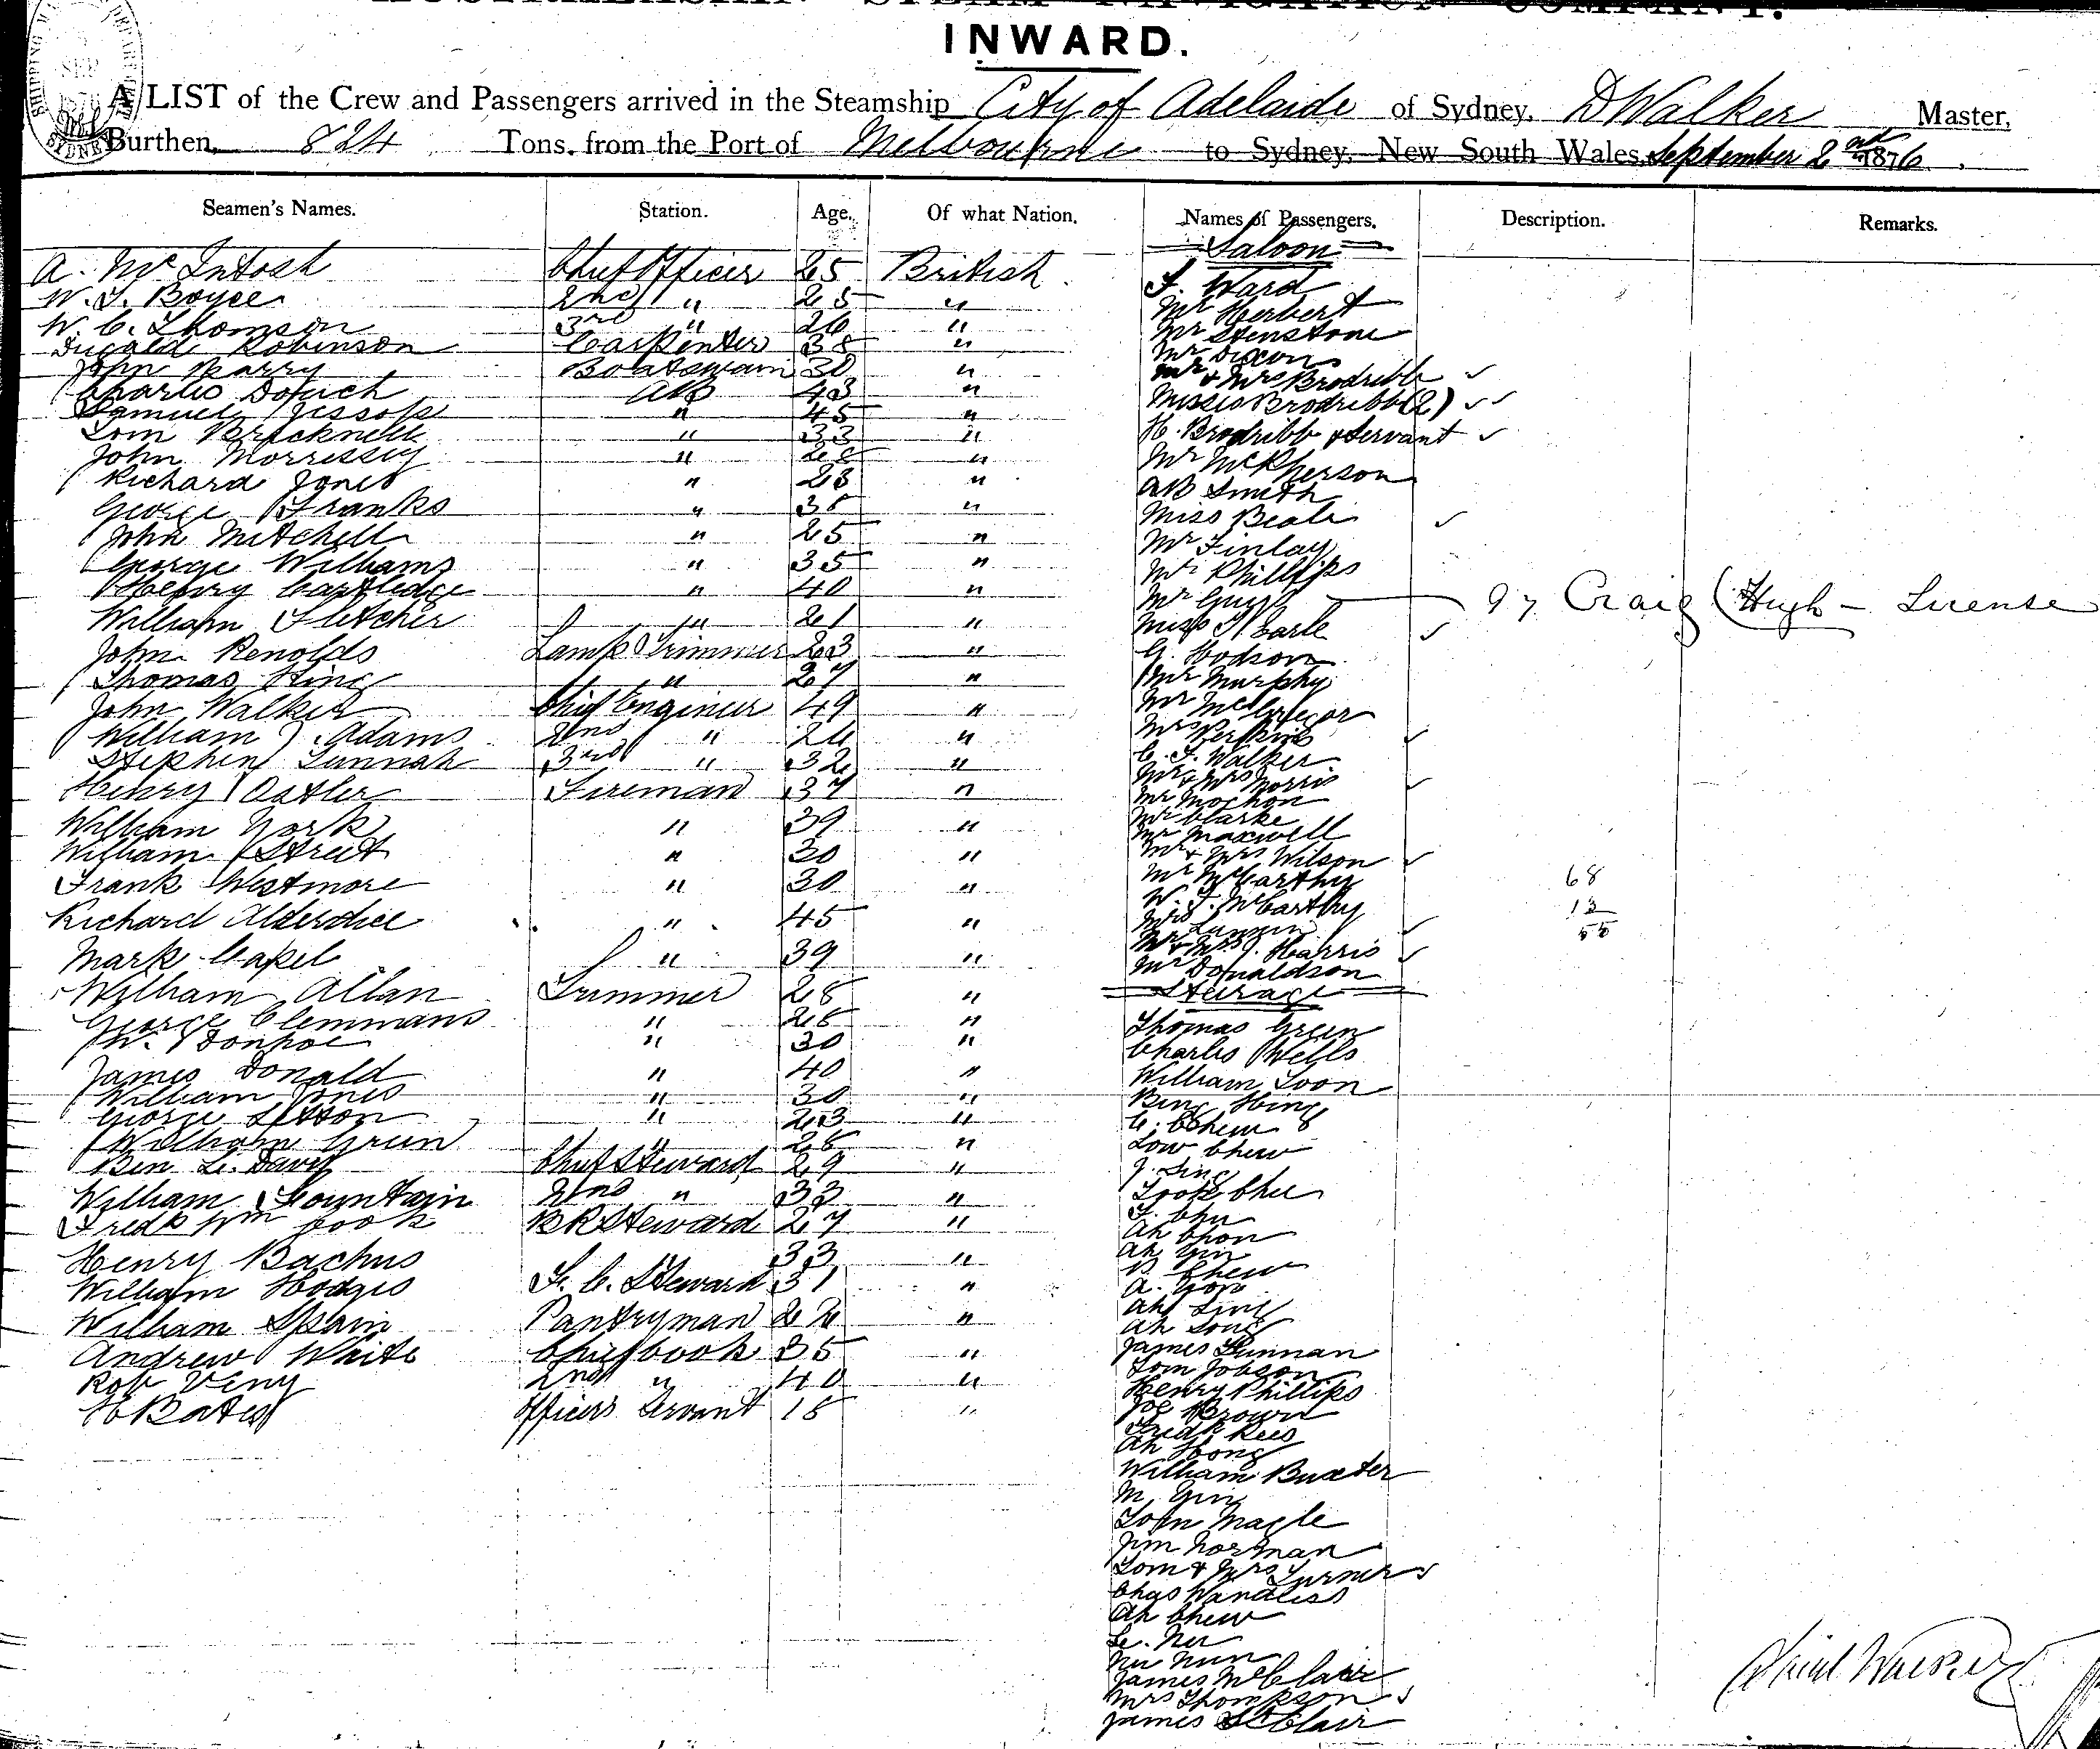 AUSTRALASIAN STEAM NAVIGATION COMPANY.
INWARD.
A LIST of the Crew and Passengers arrived in the Steamship City of Adelaide of Sydney, D Walker Master,
Burthen, 824 Tons, from the Port of Melbourne to Sydney, New South Wales, September 2nd 1876
Seamen's Names. Station. Age. Of what Nation. Names of Passengers. Description. Remarks.
Saloon
A. McIntosh Chief Officer 25 British
W. J. Boyce 2nd " 25 "
W. C. Thomson 3rd " 26 "
Dugald Robinson Carpenter 38 "
John Parry Boatswain 30 "
Charles Douch AB 43 "
Samuel Jessop " 45 "
Tom Bracknell " 33 "
John Morrissey " 28 "
Richard Jones " 23 "
George Franks " 38 "
John Mitchell " 25 "
George Williams " 35 "
Henry Cartledge " 40 "
William Fletcher " 21 "
John Renolds Lamp Trimmer 23 "
Thomas King " 27 "
John Walker Chief Engineer 49 "
William J. Adams 2nd " 26 "
Stephen Tunnah 3rd " 32 "
Henry Ostler Fireman 37 "
William York " 39 "
William Street " 30 "
Frank Westmore " 30 "
Richard Alderdice " 45 "
Mark Capel " 39 "
William Allan Trimmer 28 "
George Clemmans " 26 "
W. Donhoe " 30 "
James Donald " 40 "
William Jones " 30 "
George Sisson " 23 "
William Green " 26 "
Ben L. Davis Chief Steward 29 "
William Fountain 2nd " 33 "
Fredk Wm Cook BR Steward 27 "
Henry Bachus 33 "
William Hodges F. C. Steward 31 "
William Spain Pantryman 22 "
Andrew White Chief Cook 35 "
Rob Veny 2nd " 40 "
H Bates Officers Servant 18 "
F. Ward
Mr Herbert
Mr Stenstone
Mr Dixon
Mr & Mrs Brodribb
Misses Brodribb (2)
H. Brodribb & Servant
Mr McPherson
AB Smith
Miss Beale
Mr Finlay
Mr Phillips
Mr Guy 97 Craig (Hugh - License
Miss J Earle
G. Hodson
Mr Murphy
Mr McGregor
Mrs Perkins
C. F. Walker
Mr & Mrs Morris
Mr Mochon
Mr Clarke
Mr Maxwell
Mr & Mrs Wilson
Mr McCarthy 68
W. J. McCarthy 13
Mrs 55
Mr & Mrs J. Harris
Mr Donaldson
Steerage
Thomas Green
Charles Wells
William Toon
Bing Hing
C. Chew
Low Chew
J. Sing
Took Chee
F. Chu
Ah Chon
Ah Gin
B. Chew
A. Yow
Ah Sing
Ah Song
James Gunnan
Tom Jobson
Henry Phillips
Joe Brown
Fredk Rees
Ah Hong
William Buxter
M. Gin
John Magle
Jim Norman
Tom & Mrs Turner
Chas Wandless
Ah Chew
Le. Nu
Nu Nun
James McClair
Mrs Thompson
James StClair
David Walker